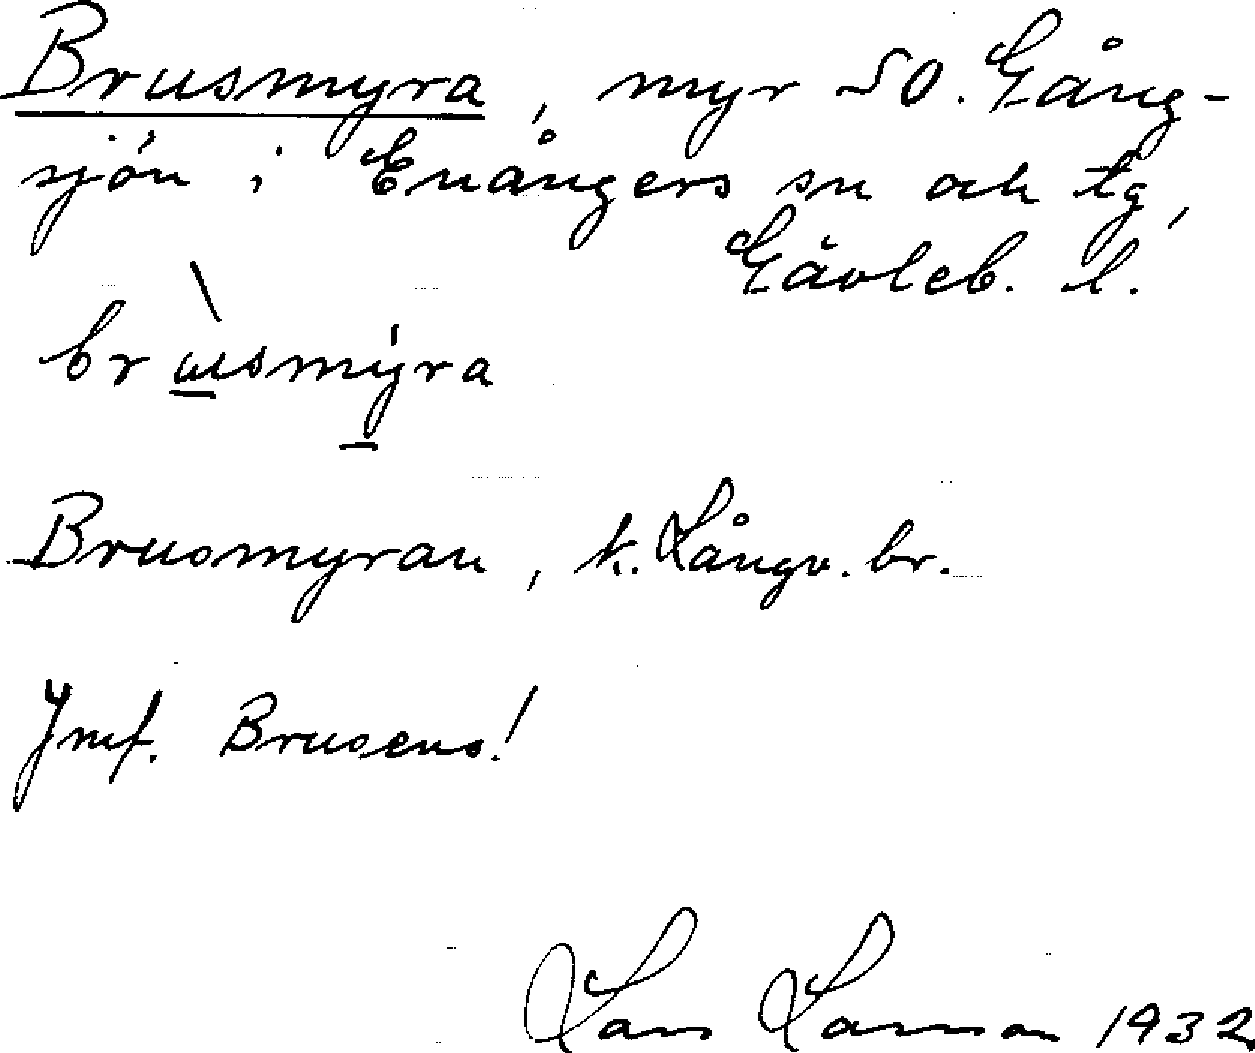 Brusmyra, myr SO. Gång-
sjön i Enångers sn och tg,
Gävleb. l.
brùsmýra
Brusmyran, k. Långv. br.
Jmf. Brusens!
Lars Larsson 1932